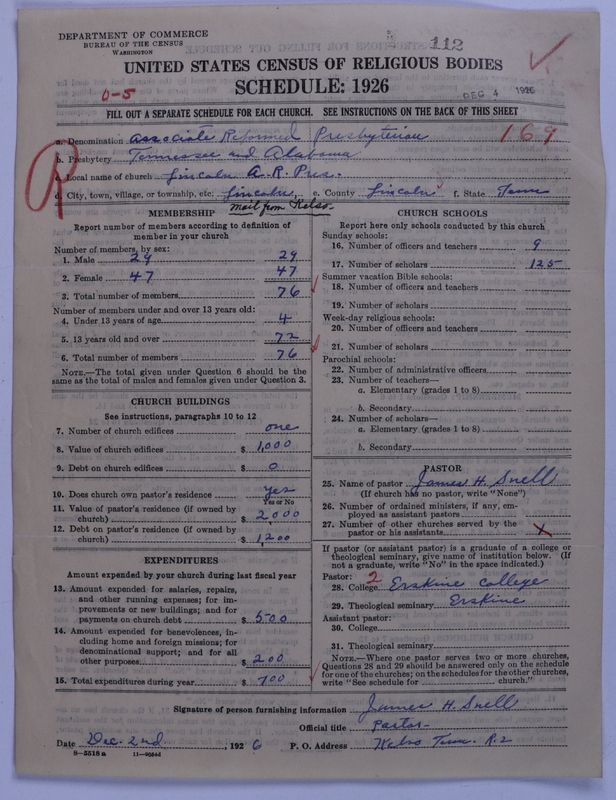 DEPARTMENT OF COMMERCE
BUREAU OF THE CENSUS
WASHINGTON
112
UNITED STATES CENSUS OF RELIGIOUS BODIES
SCHEDULE: 1926
0-5
DEC 4 1926
FILL OUT A SEPARATE SCHEDULE FOR EACH CHURCH. SEE INSTRUCTIONS ON THE BACK OF THIS SHEET
a. Denomination Associate Reformed Presbyterian 169
b. Presbytery Tennessee and Alabama
c. Local name of church Lincoln A. R. Pres.
d. City, town, village, or township, etc. Lincoln, e. County Lincoln f. State Tenn
mail from Kelso
R
MEMBERSHIP
Report number of members according to definition of member in your church
Number of members, by sex:
1. Male 29 29
2. Female 47 47
3. Total number of members 76
Number of members under and over 13 years old:
4. Under 13 years of age 4
5. 13 years old and over 72
6. Total number of members 76
NOTE.—The total given under Question 6 should be
same as the total of males and females given under Question 3.
CHURCH BUILDINGS
See instructions, paragraphs 10 to 12
7. Number of church edifices one
8. Value of church edifices $ 1,000
9. Debt on church edifices $ 0
10. Does church own pastor's residence yes
Yes or No
11. Value of pastor's residence (if owned by
church) $ 2000
12. Debt on pastor's residence (if owned by
church) $ 1,200
EXPENDITURES
Amount expended by your church during last fiscal year
13. Amount expended for salaries, repairs,
and other running expenses; for im-
provements or new buildings; and for
payments on church debt $ 500
14. Amount expended for benevolences, in-
cluding home and foreign missions; for
denominational support; and for all
other purposes $ 200
15. Total expenditures during year $ 700
CHURCH SCHOOLS
Report here only schools conducted by this church
Sunday schools:
16. Number of officers and teachers 9
17. Number of scholars 125
Summer vacation Bible schools:
18. Number of officers and teachers
19. Number of scholars
Week-day religious schools:
20. Number of officers and teachers
21. Number of scholars
Parochial schools:
22. Number of administrative officers
23. Number of teachers—
a. Elementary (grades 1 to 8)
b. Secondary
24. Number of scholars—
a. Elementary (grades 1 to 8)
b. Secondary
PASTOR
25. Name of pastor James H. Snell
(If church has no pastor, write "None")
26. Number of ordained ministers, if any, em-
ployed as assistant pastors
27. Number of other churches served by the
pastor or his assistants X
If pastor (or assistant pastor) is a graduate of a college or
theological seminary, give name of institution below. (If
not a graduate, write "No" in the space indicated.)
Pastor: 2
28. College Erskine College
29. Theological seminary Erskine
Assistant pastor:
30. College
31. Theological seminary
NOTE.—Where one pastor serves two or more churches,
Questions 28 and 29 should be answered only on the schedule
for one of the churches; on the schedules for the other churches,
write "See schedule for church."
Signature of person furnishing information James H. Snell
Official title Pastor
Date Dec. 2nd, 1926 P. O. Address Kelso Tenn. R. 2
8-5518 a